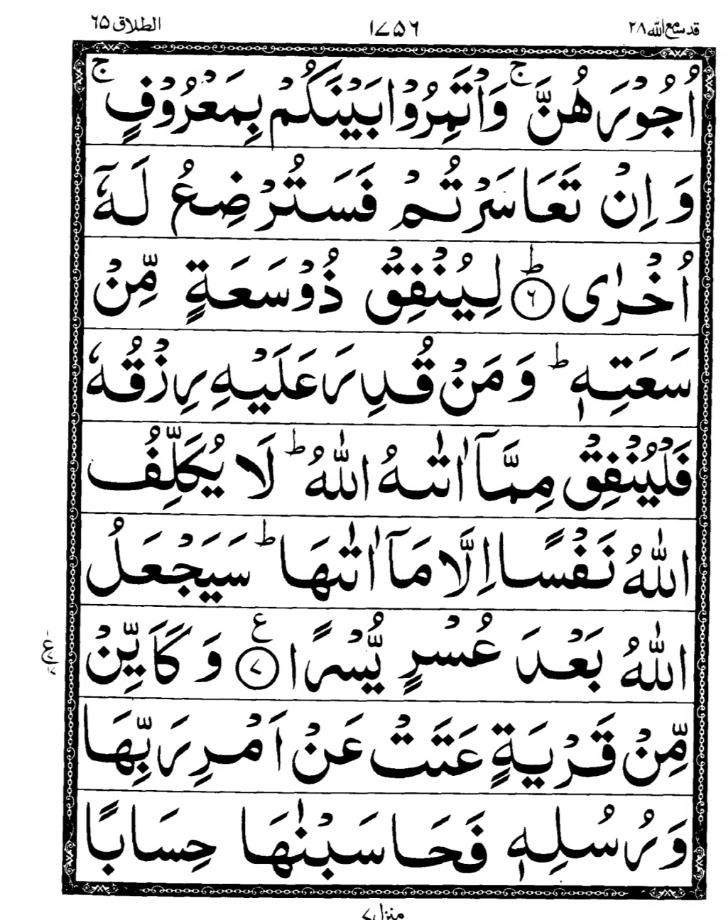 قد سمع الله ۲۸
۱۷۵۶
الطلاق ۶۵
اُجُوۡرَهُنَّ ۚ وَاۡتَمِرُوۡا بَيۡنَكُمۡ بِمَعۡرُوۡفٍ ۚ
وَ اِنۡ تَعَاسَرۡتُمۡ فَسَتُرۡضِعُ لَهٗۤ
اُخۡرٰى ؕ‏ ﴿۶﴾ لِيُنۡفِقۡ ذُوۡ سَعَةٍ مِّنۡ
سَعَتِهٖ ؕ وَ مَنۡ قُدِرَ عَلَيۡهِ رِزۡقُهٗ
فَلۡيُنۡفِقۡ مِمَّاۤ اٰتٰٮهُ اللّٰهُ ؕ لَا يُكَلِّفُ
اللّٰهُ نَفۡسًا اِلَّا مَاۤ اٰتٰٮهَا ؕ سَيَجۡعَلُ
اللّٰهُ بَعۡدَ عُسۡرٍ يُّسۡرًا ﴿۷﴾ ع وَ كَاَيِّنۡ
مِّنۡ قَرۡيَةٍ عَتَتۡ عَنۡ اَمۡرِ رَبِّهَا
وَ رُسُلِهٖ فَحَاسَبۡنٰهَا حِسَابًا
منزل ۷